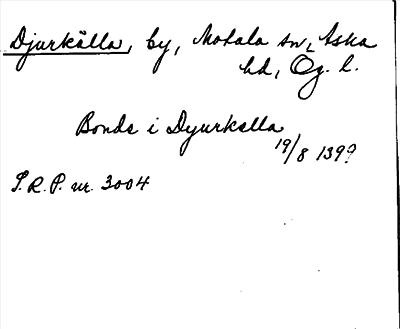 Djurkälla, by, Motala sn, Aska
hd, Ög. l.
Bonde i Dyurkella
19/8 139?
S.R.P. nr. 3004